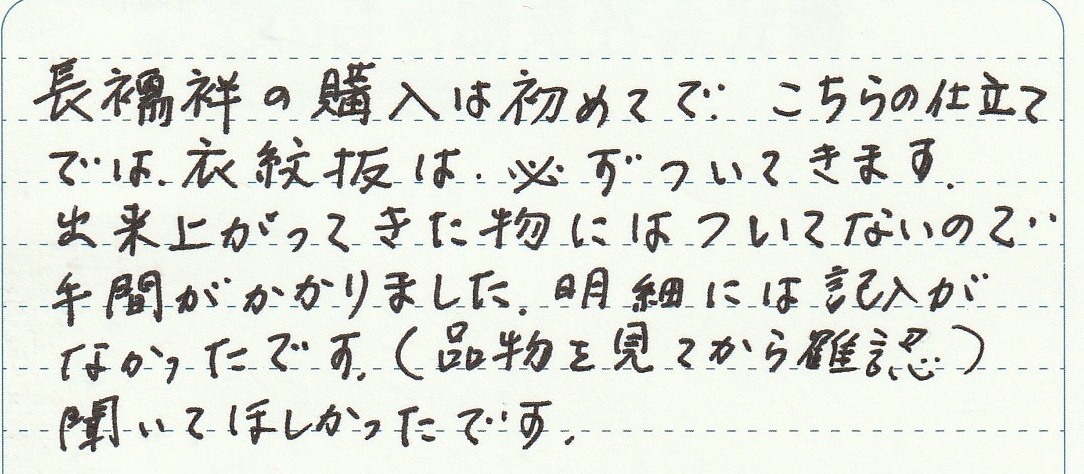 長襦袢の購入は初めてで、こちらの仕立て
では、衣紋抜は、必ずついてきます。
出来上がってきた物にはついてないので
手間がかかりました。明細には記入が
なかったです。(品物を見てから確認)
聞いてほしかったです。